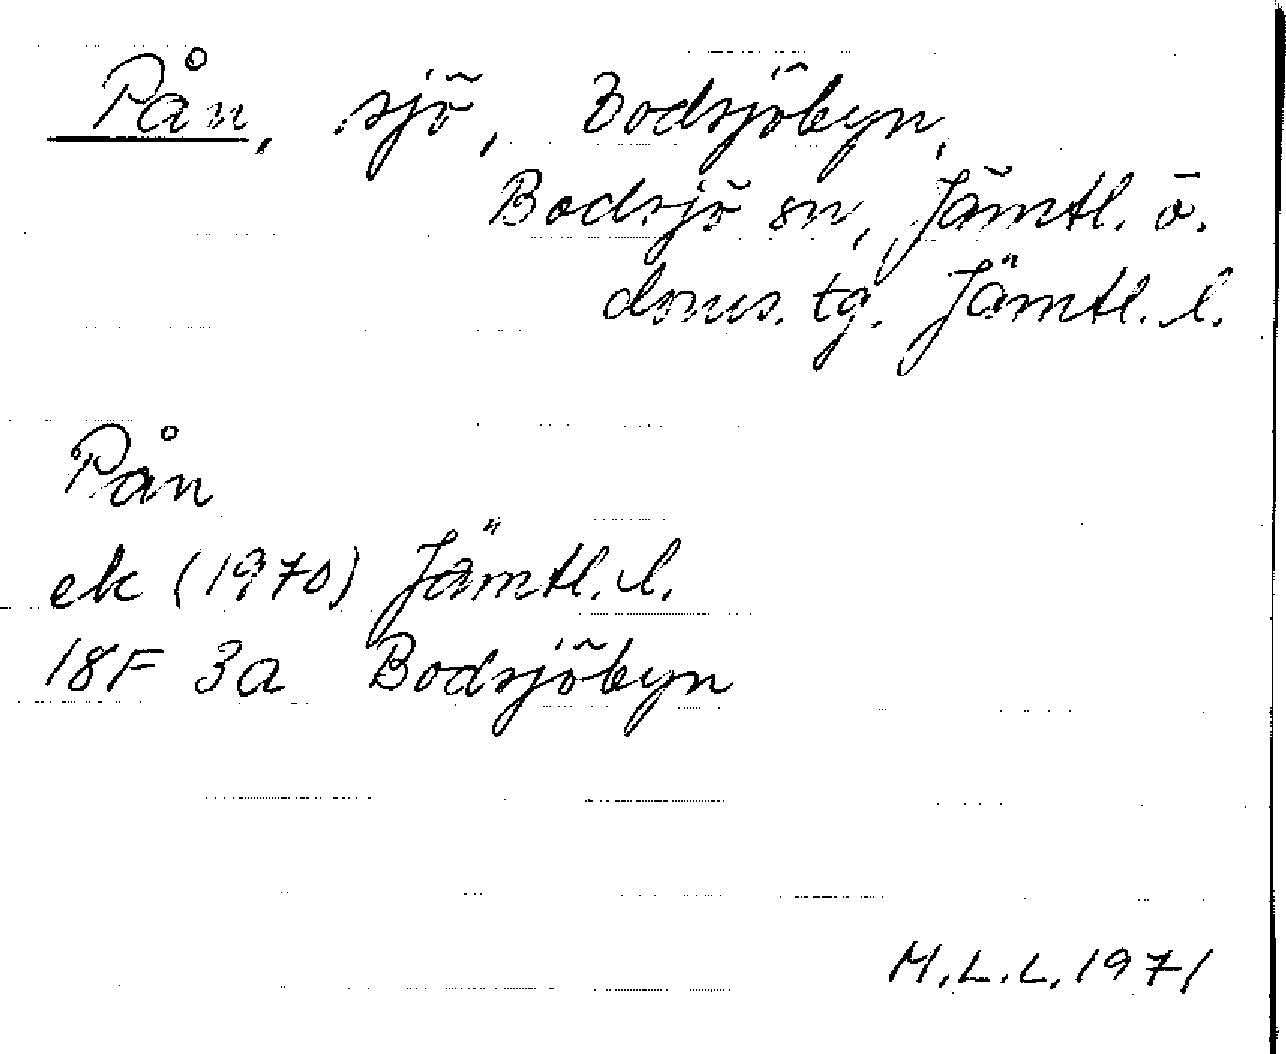 Pån, sjö, Bodsjöbyn,
Bodsjö sn, Jämtl. ö.
doms. tg. Jämtl. l.
Pån
ek (1970) Jämtl. l.
18F 3a Bodsjöbyn
M.L.L. 1971